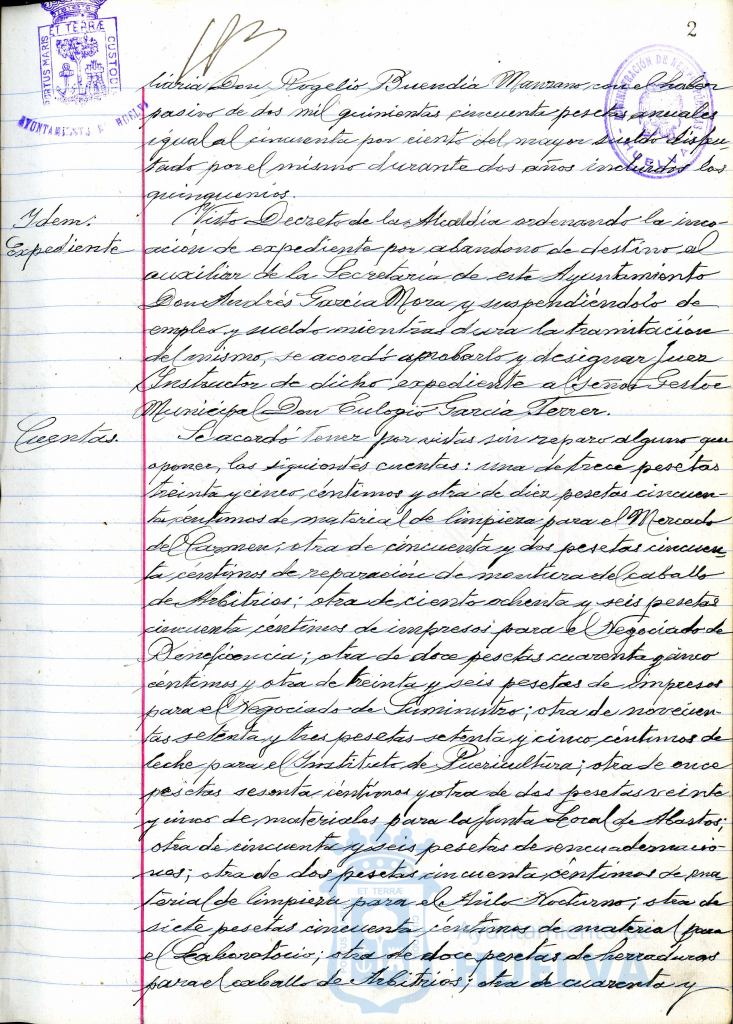 2
ET TERRÆ
PORTUS MARIS
CUSTODIA
AYUNTAMIENTO HUELVA
ADMINISTRACIÓN DE
HUELVA
liaria Don Rogelio Buendía Manzano con el haber
pasivo de dos mil quinientas cincuenta pesetas anuales
igual al cincuenta por ciento del mayor sueldo disfru-
tado por el mismo durante dos años incluidos los
quinquenios.
Idem.
Expediente
Visto Decreto de la Alcaldía ordenando la inco-
ación de expediente por abandono de destino al
auxiliar de la Secretaría de este Ayuntamiento
Don Andrés García Mora y suspendiéndolo de
empleo y sueldo mientras dura la tramitación
del mismo, se acordó aprobarlo y designar Juez
Instructor de dicho expediente al Señor Gestor
Municipal Don Eulogio García Ferrer.
Cuentas.
Se acordó tener por vistas sin reparo alguno que
oponer, las siguientes cuentas: una de trece pesetas
treinta y cinco céntimos y otra de diez pesetas cincuen-
ta céntimos de material de limpieza para el Mercado
del Carmen; otra de cincuenta y dos pesetas cincuen-
ta céntimos de reparación de montura del caballo
de Arbitrios; otra de ciento ochenta y seis pesetas
cincuenta céntimos de impresos para el Negociado de
Beneficencia; otra de doce pesetas cuarenta y cinco
céntimos y otra de treinta y seis pesetas de impresos
para el Negociado de Suministro; otra de novecien-
tas setenta y tres pesetas setenta y cinco céntimos de
leche para el Instituto de Puericultura; otra de once
pesetas sesenta céntimos y otra de dos pesetas veinte
y cinco de materiales para la Junta Local de Abastos;
otra de cincuenta y seis pesetas de encuadernacio-
nes; otra de dos pesetas cincuenta céntimos de ma-
terial de limpieza para el Asilo Nocturno; otra de
siete pesetas cincuenta céntimos de material para
el Laboratorio; otra de doce pesetas de herraduras
para el caballo de Arbitrios; otra de cuarenta y
ET TERRÆ
Ayuntamiento de
HUELVA